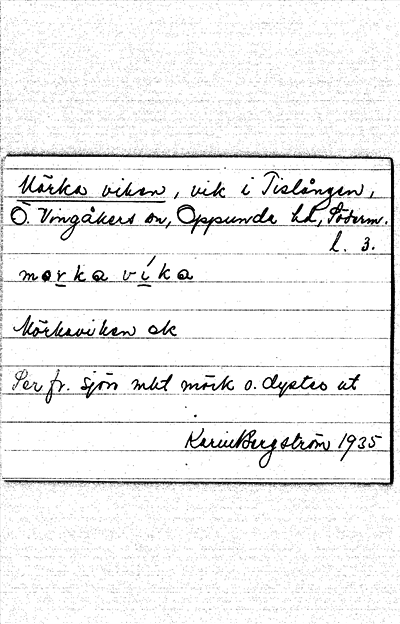 Mörka viken, vik i Tislången,
Ö. Vingåkers sn, Oppunda hd, Söderm.
l. 3.
mørka víka
Mörkaviken ek
Ser fr. sjön mkt mörk o. dyster ut
Karin Bergström 1935